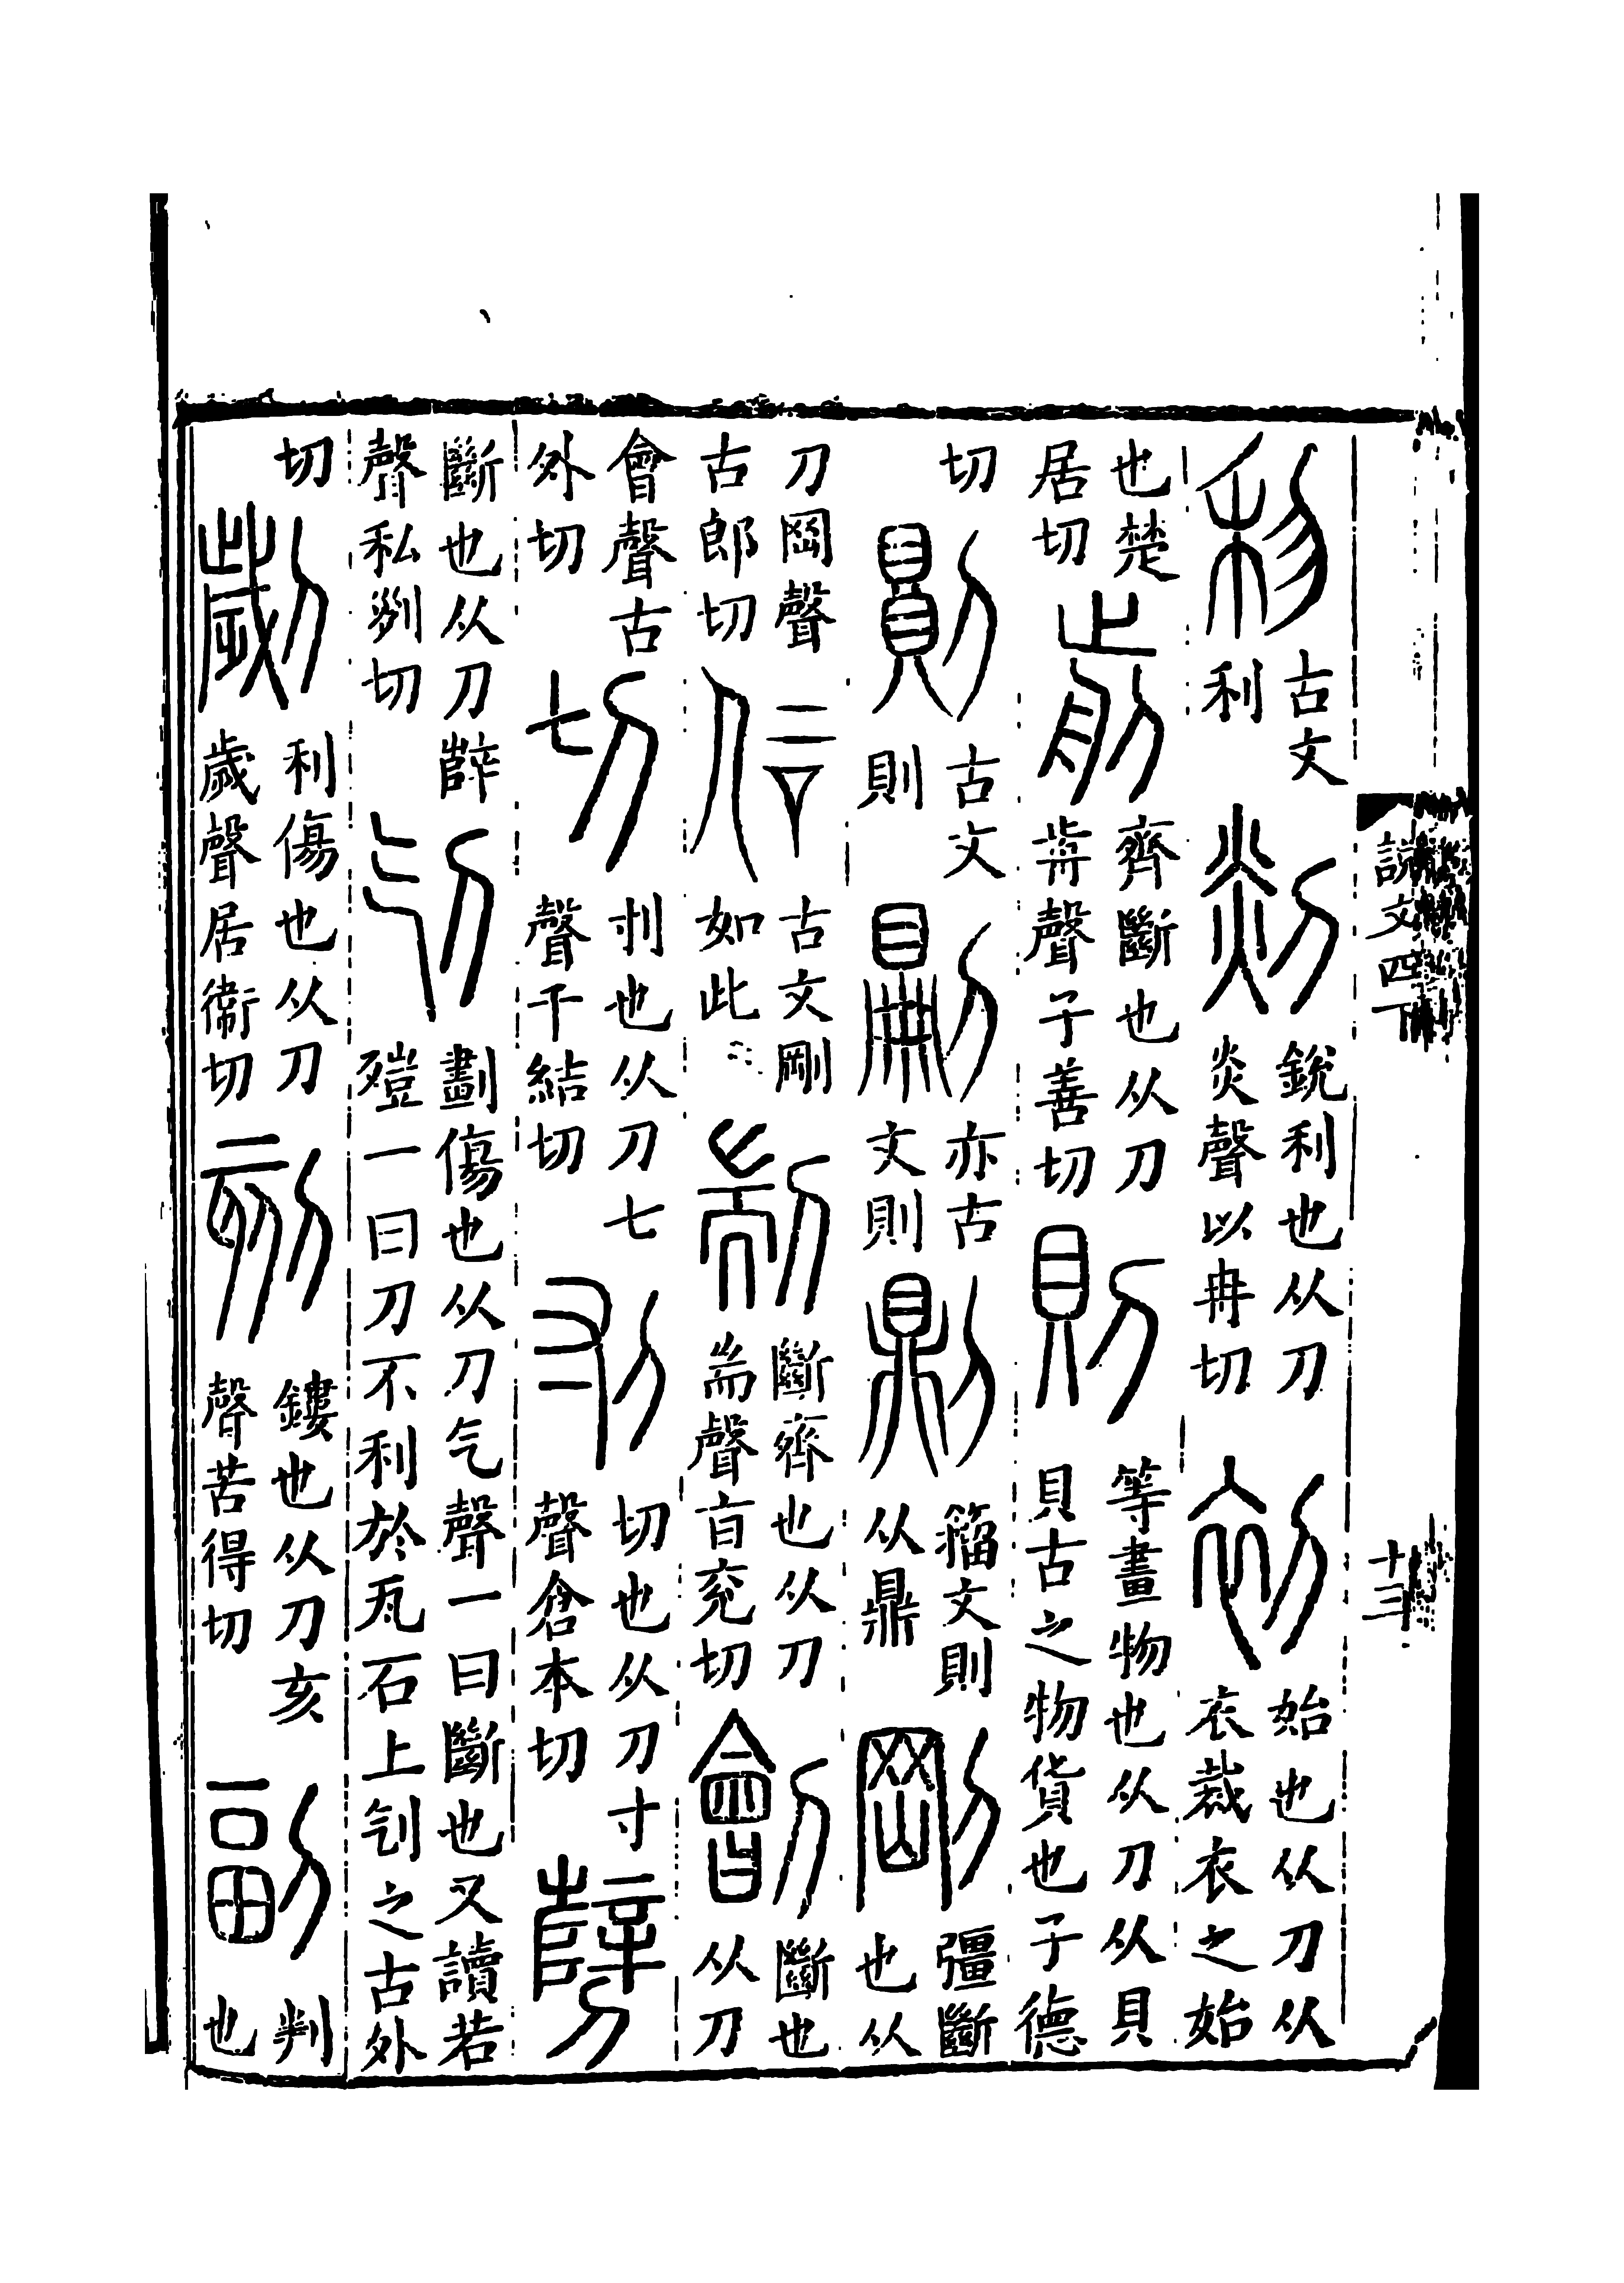 說文四下
十三
𥝢古文利剡銳利也从刀炎聲以冉切初始也从刀从衣裁衣之始
也楚居切前齊斷也从刀歬聲子善切則等畫物也从刀从貝貝古之物貨也子德
切𠟻古文則𠞋亦古文則𠟭籒文則从鼎剛彊斷也从
刀岡聲古郎切𠇙古文剛如此剬斷齊也从刀耑聲旨兖切劊斷也从刀
會聲古外切切刌也从刀七聲千結切刌切也从刀寸聲倉本切𠠫
斷也从刀辥聲私列切刉劃傷也从刀气聲一曰斷也又讀若殪一曰刀不利於瓦石上刉之古外
切劌利傷也从刀歲聲居衞切刻鏤也从刀亥聲苦得切副判也